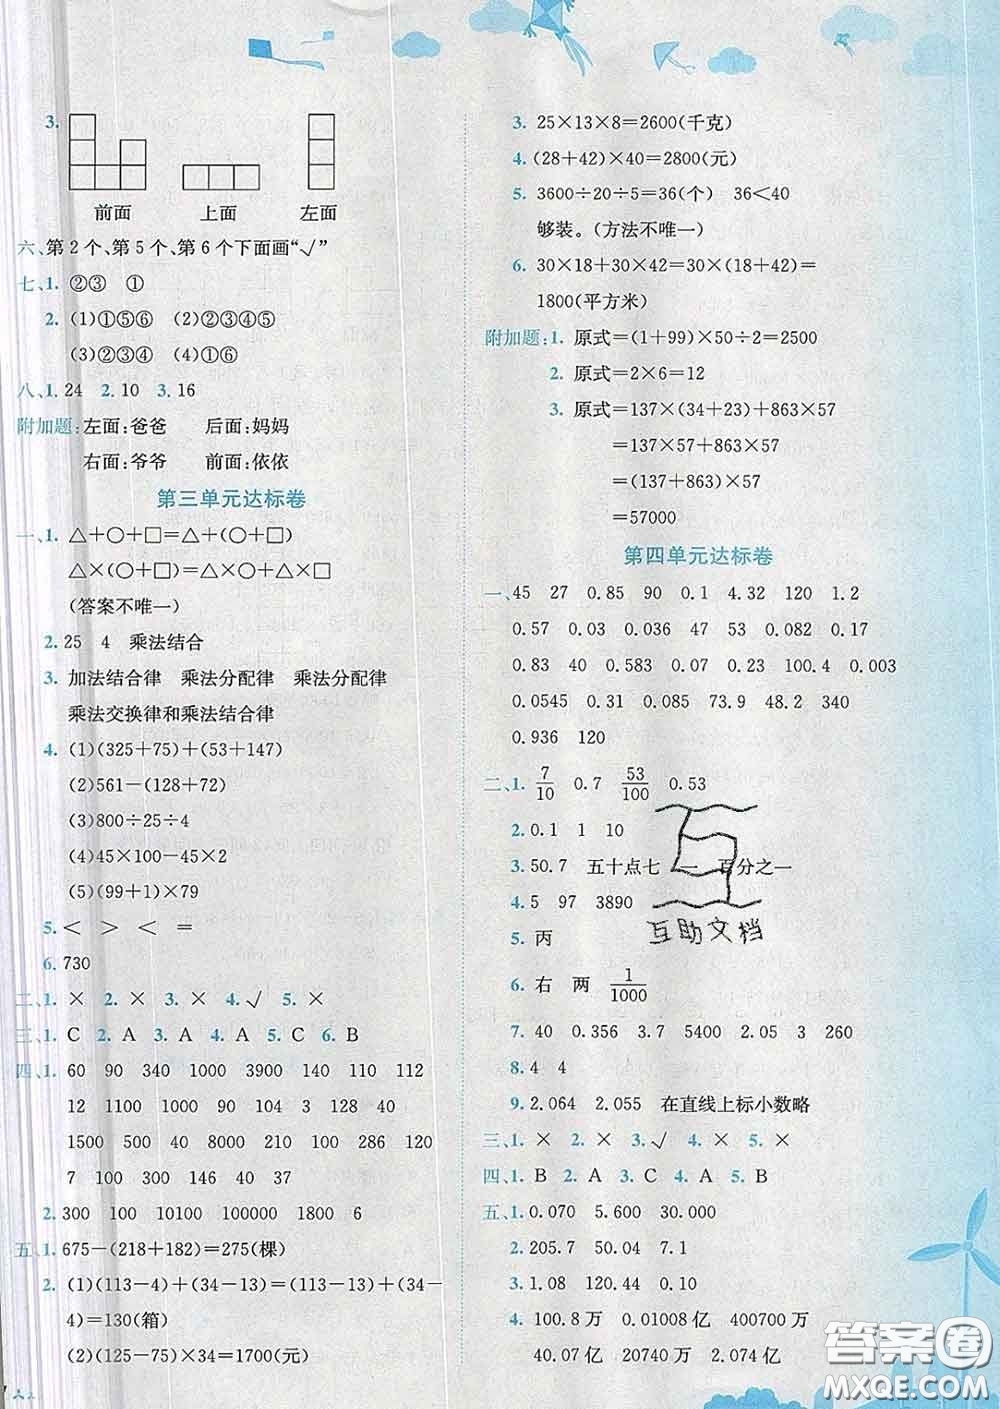 3.
前面 上面 左面
六、第2个、第5个、第6个下面画“√”
七、1. ②③ ①
2. (1)①⑤⑥ (2)②③④⑤
(3)②③④ (4)①⑥
八、1. 24 2. 10 3. 16
附加题:左面:爸爸 后面:妈妈
右面:爷爷 前面:依依
第三单元达标卷
一、1. △+○+□=△+(○+□)
△×(○+□)=△×○+△×□
(答案不唯一)
2. 25 4 乘法结合
3. 加法结合律 乘法分配律 乘法分配律
乘法交换律和乘法结合律
4. (1)(325+75)+(53+147)
(2)561-(128+72)
(3)800÷25÷4
(4)45×100-45×2
(5)(99+1)×79
5. < > < =
6. 730
二、1. × 2. × 3. × 4. √ 5. ×
三、1. C 2. A 3. A 4. A 5. C 6. B
四、1. 60 90 340 1000 3900 110 112
12 1100 1000 104 3 128 40
1500 500 40 8000 210 286 120
7 100 340 300 97 135
2. 300 100 10100 100000 1800 6
五、1. 675-(218+182)=275(棵)
2. (1)(113-4)+(34-13)=(113-13)+(34-
4)=130(箱)
(2)(125-75)×34=1700(元)
3. 25×13×8=2600(千克)
4. (28+42)×40=2800(元)
5. 3600÷20÷5=36(个) 36<40
够装。(方法不唯一)
6. 30×18+30×42=30×(18+42)=
1800(平方米)
附加题:1. 原式=(1+99)×50÷2=2500
2. 原式=2×6=12
3. 原式=137×(34+23)+863×57
=137×57+863×57
=(137+863)×57
=57000
第四单元达标卷
一、45 27 0.85 90 0.1 4.32 120 1.2
0.57 0.03 0.036 47 53 0.082 0.17
0.83 40 0.56 0.07 0.23 100.4 0.003
0.0545 0.31 0.085 73.9 48.2 340
0.936 120
二、1. 7/10 0.7 53/100 0.53
2. 0.1 1 10
3. 50.7 五十点七 一 百分之一
4. 5 97 3890
5. 丙
6. 右 两 1/1000
7. 40 0.356 3.7 5400 2.05 3 260
8. 4 4
9. 2.064 2.055 在直线上标小数略
三、1. × 2. × 3. √ 4. × 5. ×
四、1. B 2. A 3. C 4. A 5. B
五、1. 0.070 5.600 30.000
2. 205.7 50.04 7.1
3. 1.08 120.44 0.10
4. 100.8万 0.01008亿 400700万
40.07亿 20740万 2.074亿
互助文档
答案圈
MXQE.COM